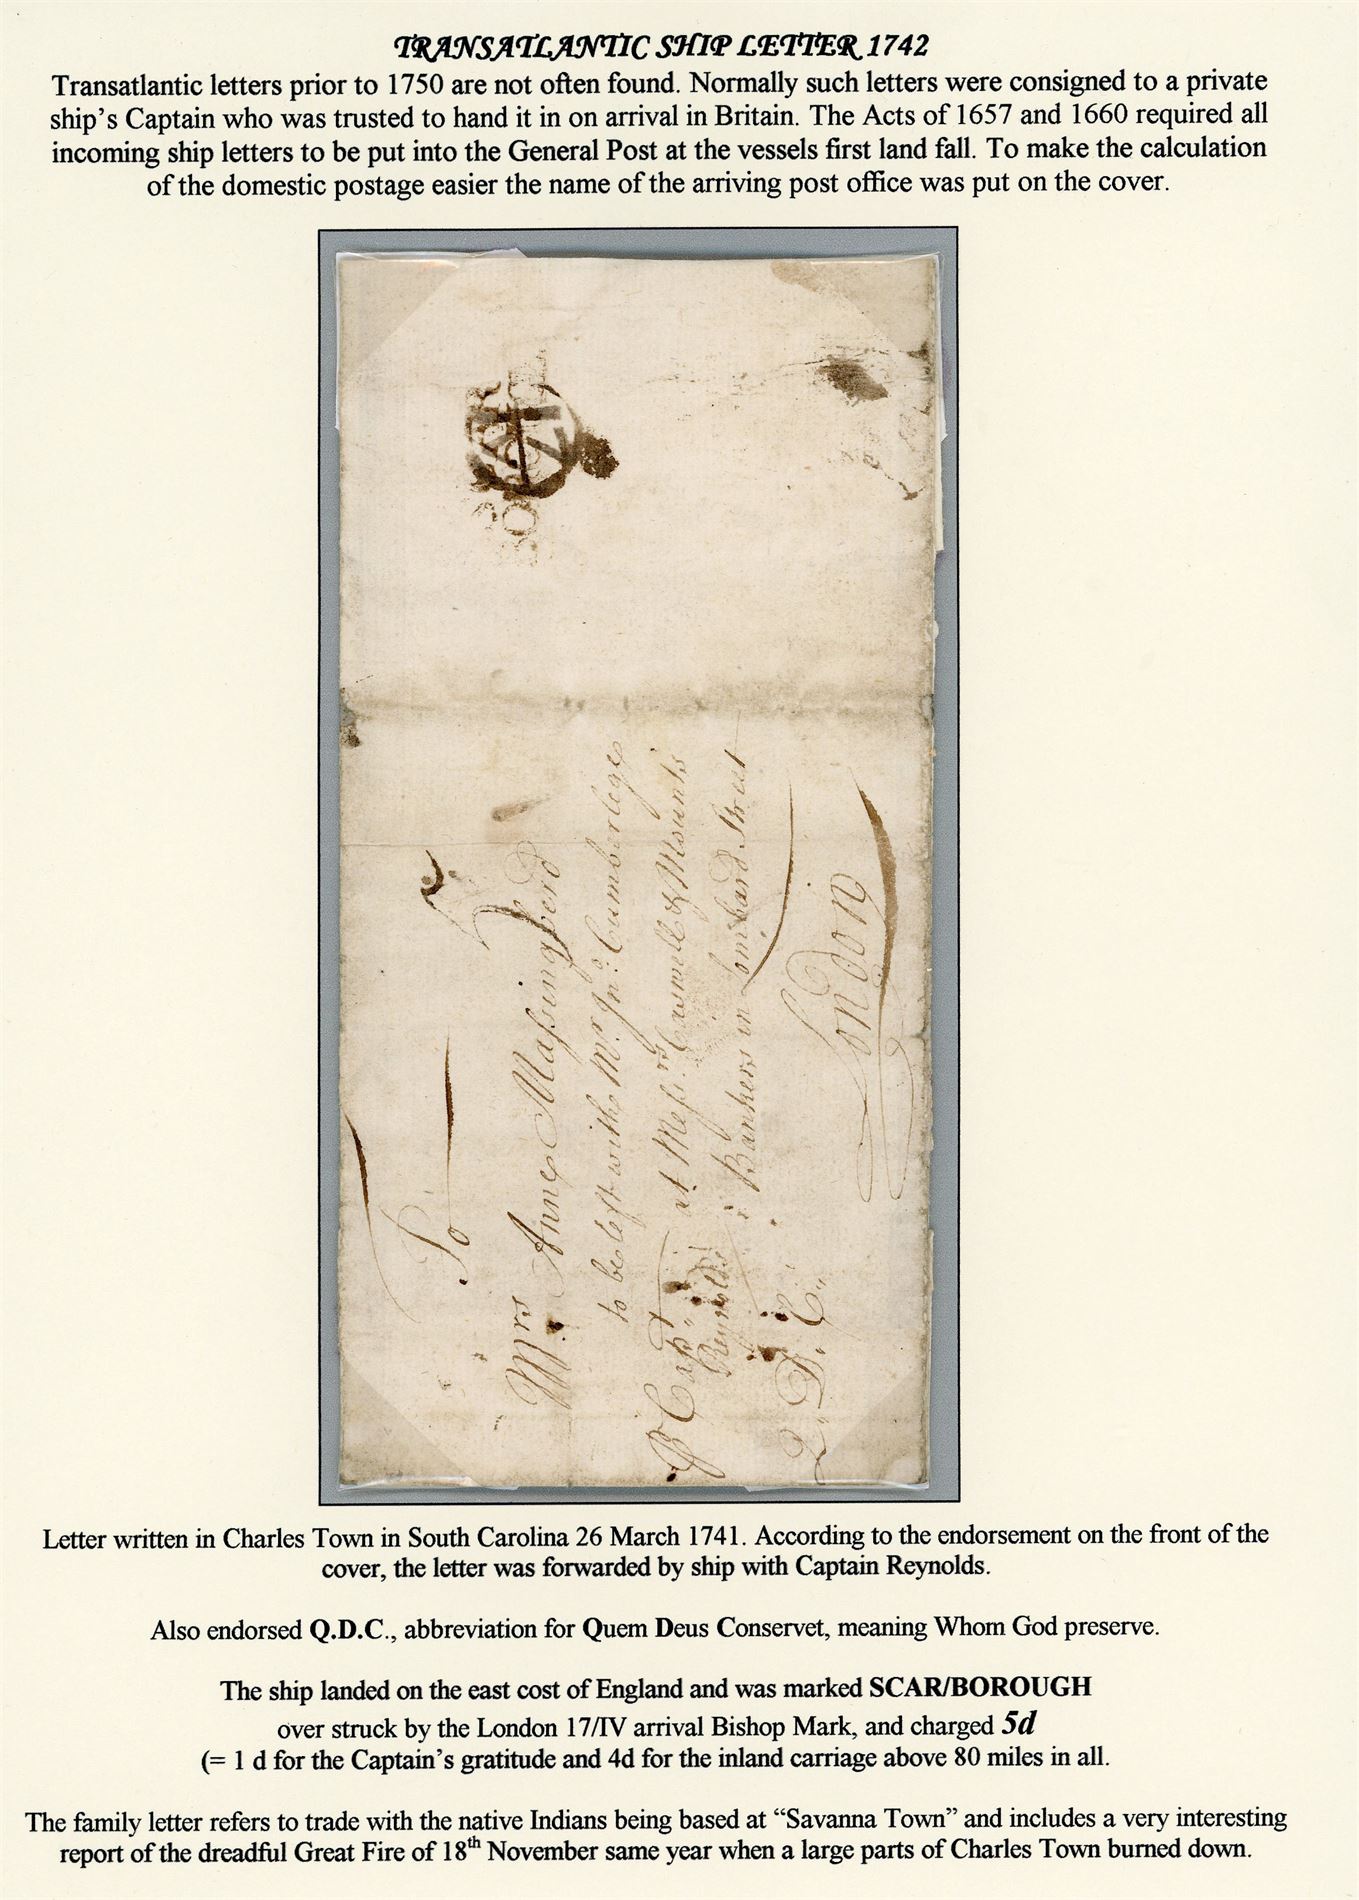 TRANSATLANTIC SHIP LETTER 1742
Transatlantic letters prior to 1750 are not often found. Normally such letters were consigned to a private
ship's Captain who was trusted to hand it in on arrival in Britain. The Acts of 1657 and 1660 required all
incoming ship letters to be put into the General Post at the vessels first land fall. To make the calculation
of the domestic postage easier the name of the arriving post office was put on the cover.
SCAR
BOROUGH
To
Mrs Anne Massingberd
to be left with Mr Jno: Cumberlege
at Messrs Caswell & Mounts
Bankers in Lombard Street
London
Pr Capt
Reynolds
Q. D. C.
Letter written in Charles Town in South Carolina 26 March 1741. According to the endorsement on the front of the
cover, the letter was forwarded by ship with Captain Reynolds.
Also endorsed Q.D.C., abbreviation for Quem Deus Conservet, meaning Whom God preserve.
The ship landed on the east cost of England and was marked SCAR/BOROUGH
over struck by the London 17/IV arrival Bishop Mark, and charged 5d
(= 1 d for the Captain's gratitude and 4d for the inland carriage above 80 miles in all.
The family letter refers to trade with the native Indians being based at "Savanna Town" and includes a very interesting
report of the dreadful Great Fire of 18th November same year when a large parts of Charles Town burned down.